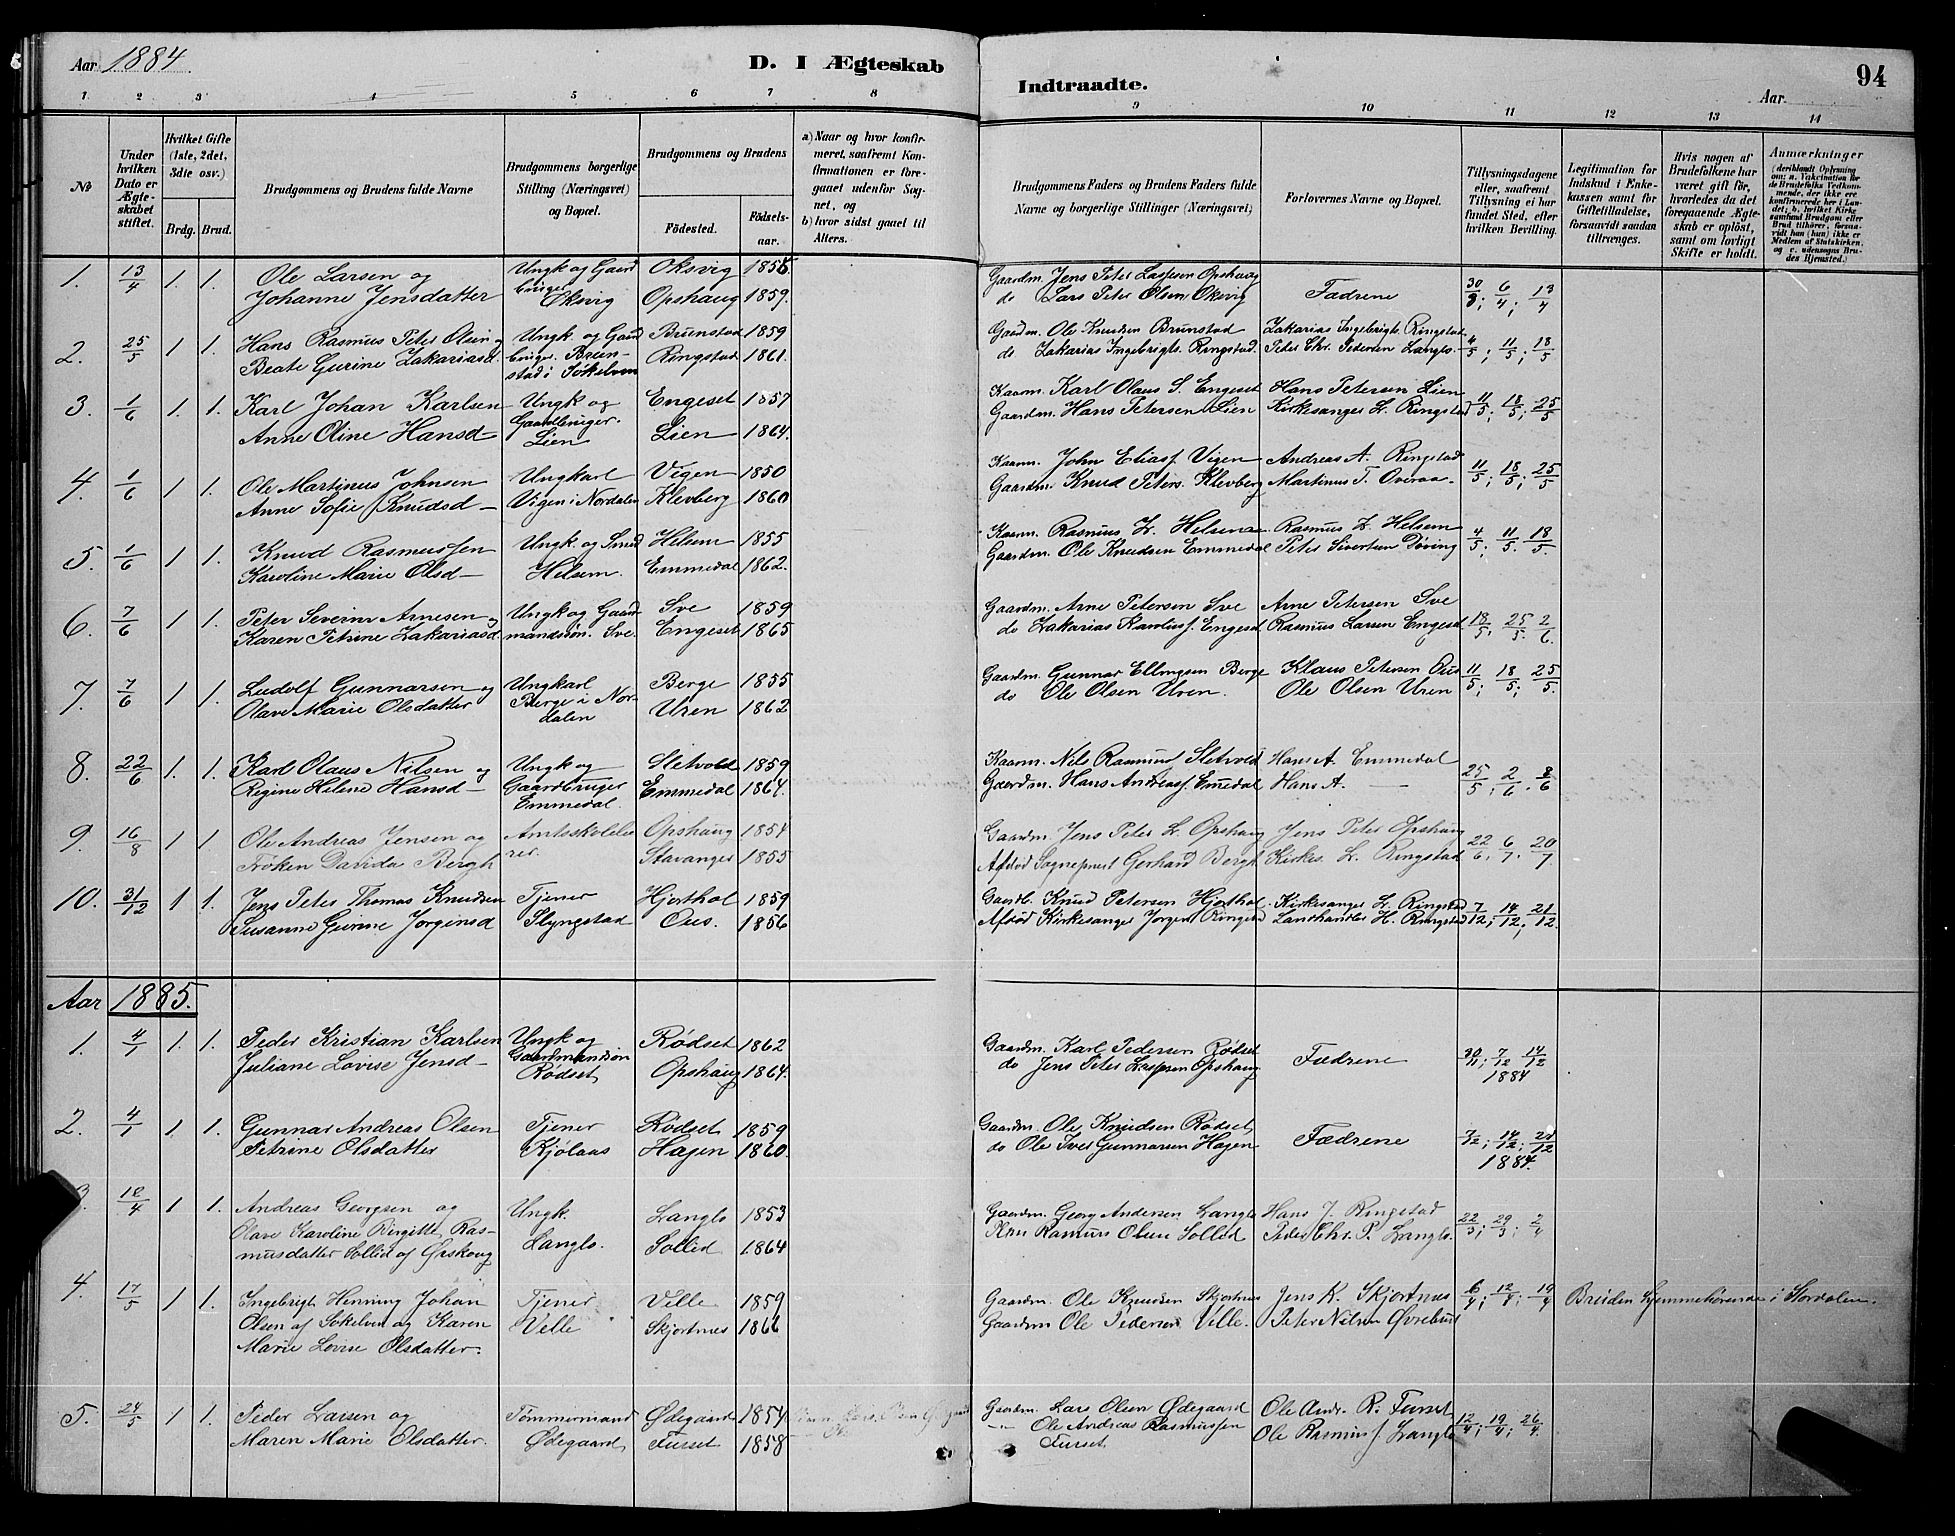 Aar 1884.
D. I Ægteskab
Indtraadte.
Aar
94
1 2 3 4 5 6 7 8 9 10 11 12 13 14
№
Under hvilken Dato er Ægteskabet stiftet.
Hvilket Gifte (1ste, 2det, 3die osv.)
Brdg. Brud.
Brudgommens og Brudens fulde Navne
Brudgommens borgerlige Stilling (Næringsvei) og Bopæl.
Brudgommens og Brudens
Födested.
Födselsaar.
a) Naar og hvor konfirmeret, saafremt Konfirmationen er foregaaet udenfor Sognet, og
b) hvor sidst gaaet til Alters.
Brudgommens Faders og Brudens Faders fulde Navne og borgerlige Stillinger (Næringsvei)
Forlovernes Navne og Bopæl.
Tillysningsdagene eller, saafremt Tillysning ei har fundet Sted, efter hvilken Bevilling.
Legitimation for Indskud i Enkekassen samt for Giftetilladelse, forsaavidt saadan tiltrænges.
Hvis nogen af Brudefolkene har været gift för, hvorledes da det foregaaende Ægteskab er oplöst, samt om lovligt Skifte er holdt.
Anmærkninger
1. 13/4 1. 1. Ole Larsen og Ungk og Gaard Oksvig 1856. Gaardm. Jens Peter Laspesen Opshaug Fædrene 30/3; 6/4; 13/4
Johanne Jensdatter bruger Oksvig Opshaug 1859. do Lars Peter Olsen Oksvig
2. 25/5 1 1. Hans Rasmus Peter Olsen og Ungk og Gaard Brunstad 1859 Gaardm. Ole Knudsen Brunstad Zakarias Ingebrigts. Ringstad 4/5; 11/5; 18/5
Beate Gurine Zakariasd. bruger Brunstad i Søkelven Ringstad 1861. do Zakarias Ingebrigts. Ringstad. Peder Chr. Pedersen Langlo.
3. 1/6 1. 1. Karl Johan Karlsen Ungk og Engeset 1857 Kaarm. Karl Olaus S. Engeset Hans Petersen Lien 11/5; 18/5; 25/5
Anne Oline Hansd Gaardbruger. Lien Lien 1864. Gaardm. Hans Petersen Lien Kirkesanger L. Ringstad
4. 1/6 1 1. Ole Martinus Johnsen Ungkarl Vigen 1850 Kaarm. John Eliass. Vigen Andreas A. Ringstad 11/5; 18/5; 25/5
Anne Sofie Knudsd Vigen i Nordalen Klevberg 1860 Gaardm. Knud Peters. Klevberg Martinus T. Overaa.
5. 1/6 1 1. Knud Rasmussen Ungk. og Smed Helsem 1855 Kaarm. Rasmus L. Helsem Rasmus L. Helsem 4/5; 11/5. 18/5.
Karoline Marie Olsd Helsem. Emmedal 1862. Gaardm. Ole Knudsen Emmedal Peter Sivertsen Døving
6. 7/6 1 1. Peter Severin Arnesen og Ungk og Gaard Sve 1859 Gaardm. Arne Petersen Sve Arne Petersen Sve 18/5; 25/5. 2/6.
Karen Petrine Zakariasd mandssøn. Sve. Engeset 1865 do Zakarias Karolius. Engeset Rasmus Larsen Engeset
7. 7/6 1 1. Ludolf Gunnarsen og Ungkarl Berge 1855 Gaardm. Gunnar Ellingsen Berge Klaus Petersen Ous 11/5; 18/5; 25/5.
Olave Marie Olsdatter Berge i Nordalen Uren 1862 do Ole Olsen Uren. Ole Olsen Uren
8. 22/6 1. 1. Karl Olaus Nilsen og Ungk og Sletvold 1859 Kaarm. Nils Rasmuss. Sletvold Hans A. Emmedal 25/5; 2/6. 8/6
Regine Helene Hansd Gaardbruger Emmedal. Emmedal 1864. Gaardm. Hans Andreass. Emedal Hans A. —
9. 16/8 1 1 Ole Andreas Jensen og Amtsskolelærer. Opshaug 1854 Gaardm. Jens Peter L. Opshaug Jens Peter Opshaug 22/6; 6/7. 20/7
Frøken Davida Bergh Stavanger 1855 Afdød Sogneprest Gerhard Bergh. Kirkes. L. Ringstad
10. 31/12 1 1. Jens Peter Thomas Knudsen Tjener Hjorthol 1859 Gaardb. Knud Petersen Hjorthol Kirkesanger L. Ringstad 7/12; 14/12; 21/12.
Susanne Gurine Jørgensd Slyngstad Ous. 1856 Afdød Kirkesanger Jørgen Ringstad Landhandler H. Ringstad
Aar 1885.
1. 4/1 1. 1. Peder Kristian Karlsen Ungk og Rødset 1862 Gaardm. Karl Pedersen Rødset Fædrene 30/11; 7/12 14/12
Juliane Lovise Jensd Gaardmandssøn Rødset Opshaug 1864. do Jens Peter Laspesen Opshaug 1884
2. 4/1 1 1. Gunnar Andreas Olsen Tjener Rødset 1859 Gaardm. Ole Knudsen Rødset Fædrene 7/12; 14/12; 21/12
Petrine Olsdatter Kjølaas Hagen 1860. do Ole Iver Gunnarsen Hagen 1884.
3. /4 1 1. Andreas Georgsen og Ungk. Langlo 1853 Gaardm. Georg Andersen Langlo Hans J. Ringstad 22/3; 29/3; 2/4
Olave Karoline Birgitte Ras- Langlo. Sollid 1864 Rasmus Olsen Sollid Peder Chr. P. Langlo.
musdatter Sollid af Ørskoug
4. 17/5 1 1. Ingebrigt Henning Johan Tjener Velle 1859 Gaardm. Ole Knudsen Skjortnes Jens K. Skjortnes 6/4; 12/4; 19/4 Bruden hjemmehørende i Stordalen.
Olsen af Søkelven og Karen Velle Skjortnes 1866 Gaardm Ole Pedersen Velle. Peter Nilsen Øvrebust
Marie Lovise Olsdatter.
5. 24/5 1 1. Peder Larsen og Tømmermand Ødegaard 1854 Gaardm. Lars Olsen Ødegaard Ole Andr. R. Furset 12/4; 19/4; 26/4.
Maren Marie Olsdatter. Ødegaard Furset 1858 Ole Andreas Rasmussen Furset. Ole Rasmuss. Langlo